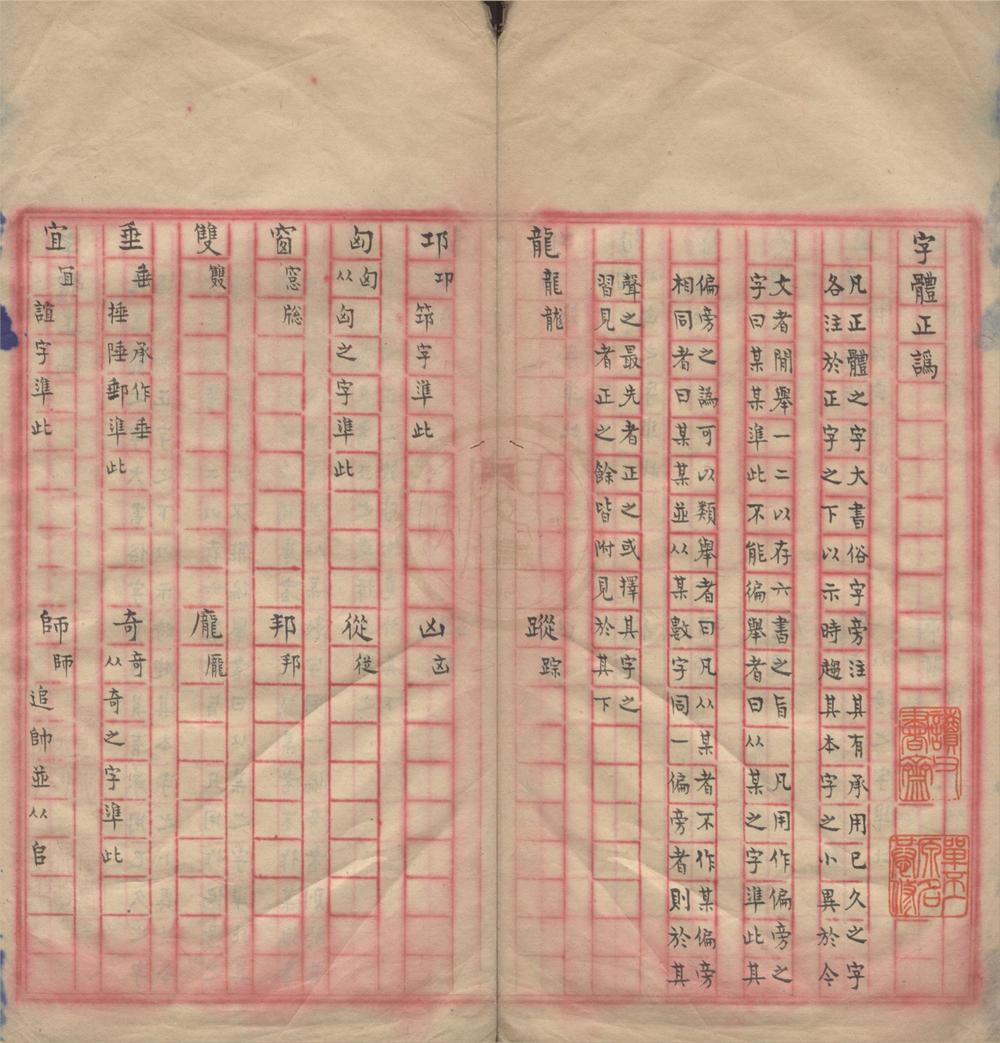 字體正譌
凡正體之字大書俗字旁注其有承用已久之字
各注於正字之下以示時趨其本字之小異於今
大者閒舉一二以存六書之旨　凡用作偏旁之
字曰某某準此不能徧舉者曰从某之字準此其
偏旁之譌可以類舉者曰凡从某者不作某偏旁
相同者曰某某並从某數字同一偏旁者則於其
聲之最先者正之或擇其字之
習見者正之餘皆附見於其下
龍
蹤 踪
卭 筇字準此
凶
匈 从匈之字準此
從
窗 窓
邦
雙
龐
垂 承作垂
捶陲郵準此
奇 从奇之字準此
宜 誼字準此
師 追帥並从𠂤